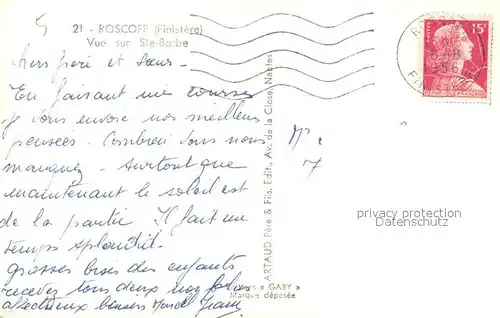 5
21 - ROSCOFF (Finistère)
Vue sur Ste-Barbe
chers frère et sœur.
En faisant une courses
je vous envoie nos meilleurs
pensées. Combien vous nous
manquez. Surtout que
maintenant le soleil est
de la partie Il fait un
temps splendid.
grosses bises des enfants
recevez tous deux nos plus
affectueux baisers
ARTAUD Père & Fils, Edit., Av. de la Close, Nantes
« GABY »
Marque déposée
Mr.
7
15F
privacy protection
Datenschutz